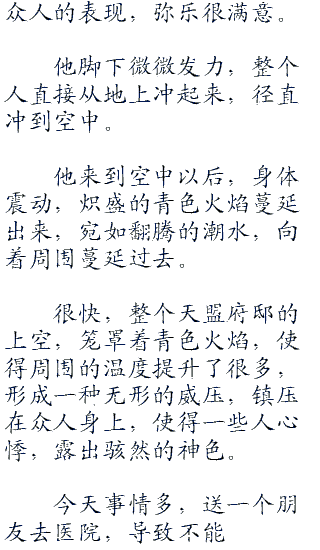 众人的表现，弥乐很满意。
他脚下微微发力，整个
人直接从地上冲起来，径直
冲到空中。
他来到空中以后，身体
震动，炽盛的青色火焰蔓延
出来，宛如翻腾的潮水，向
着周围蔓延过去。
很快，整个天盟府邸的
上空，笼罩着青色火焰，使
得周围的温度提升了很多，
形成一种无形的威压，镇压
在众人身上，使得一些人心
悸，露出骇然的神色。
今天事情多，送一个朋
友去医院，导致不能